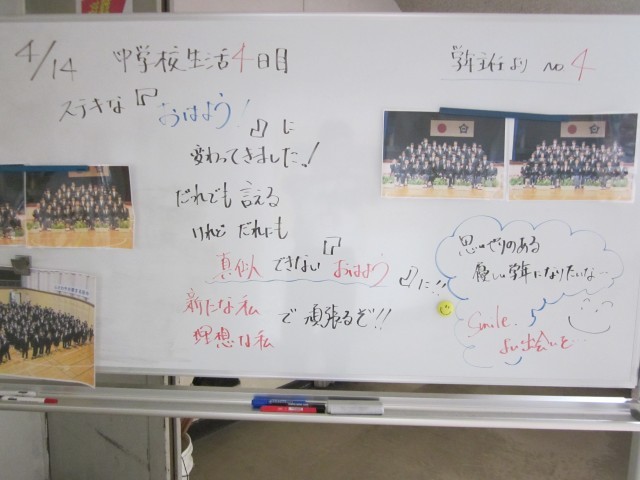 4/14 中学校生活4日目
学年主任より no 4
ステキな『おはよう!』に
変わってきました!
だれでも 言える
けれど だれにも
真似 できない『おはよう』に!!
新たな私
理想な私 で 頑張るぞ!!
思いやりのある
優しい学年になりたいなー
Smile.
よい出会いを